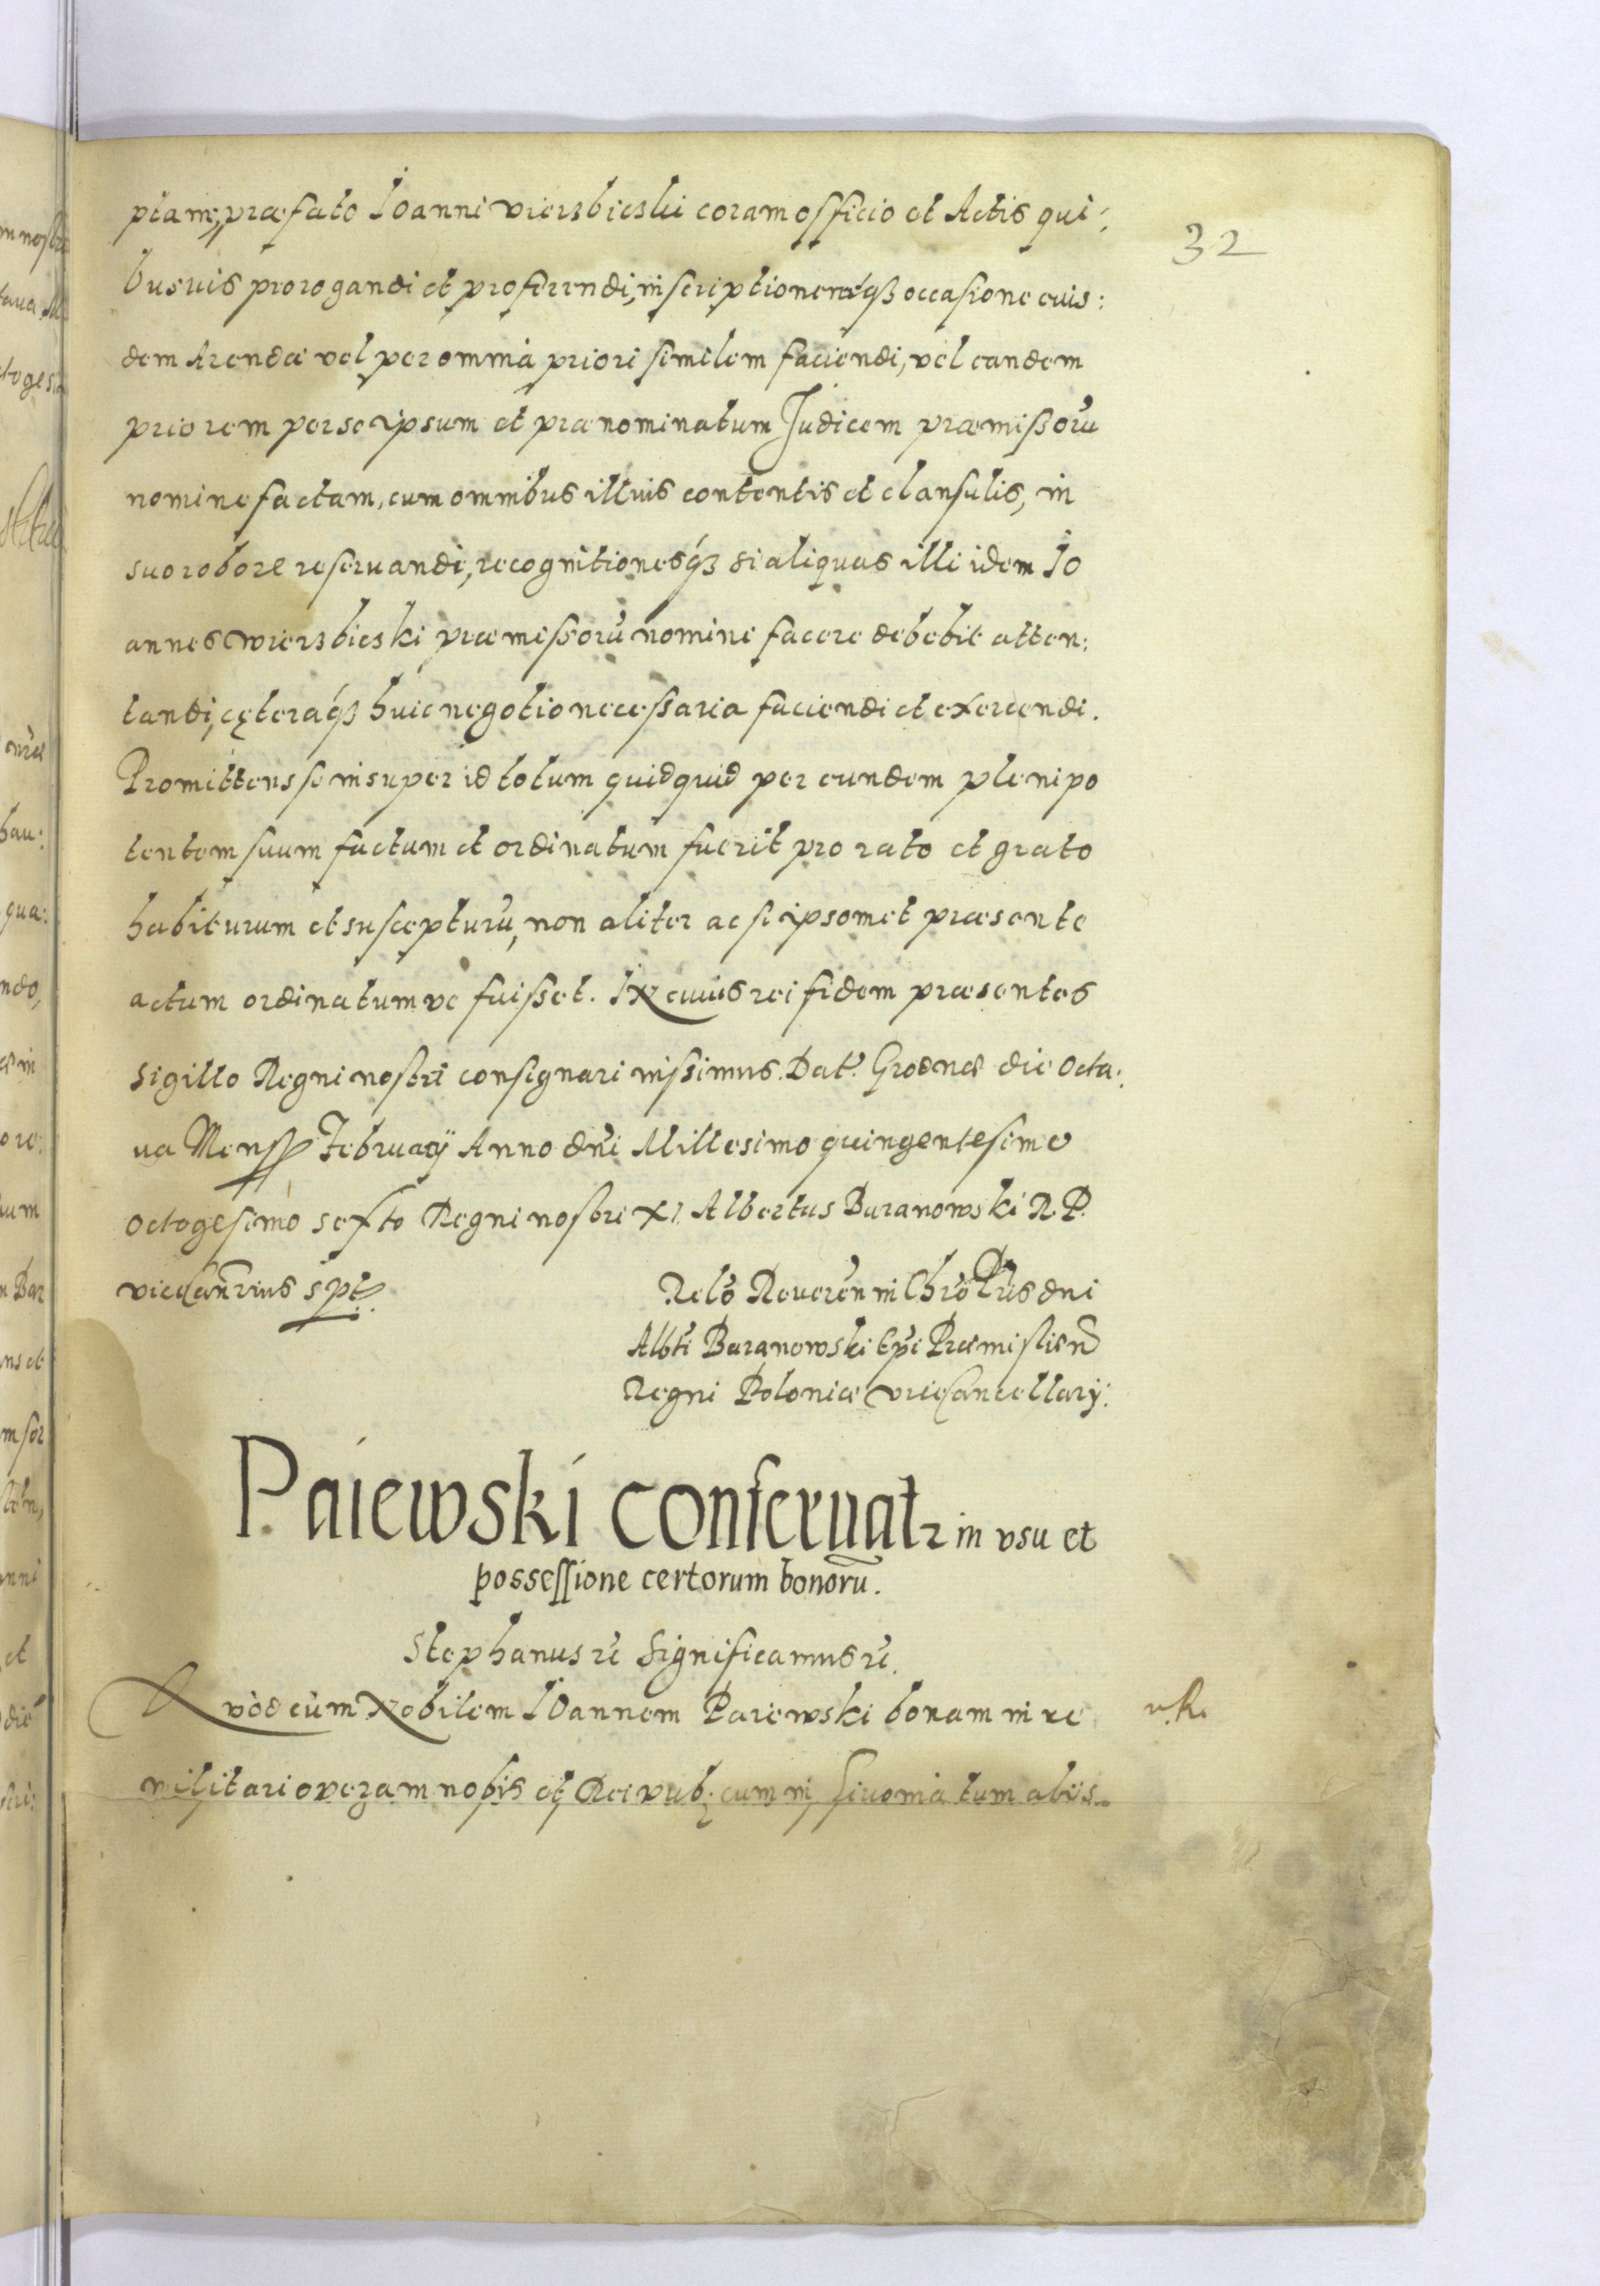 ptam, præfato Ioanni Wierzbieski coram officio et Actis qui:
32
busuis prorogandi et proferendi, inscriptionemq3 occasione eius:
dem Arendæ vel per omnia priori similem faciendi, vel eandem
priorem per se ipsum et prænominatum Judicem præmissorũ
nomine factam, cum omnibus illius contentis et clausulis, in
suo robore reseruandi, recognitionesq́3 si aliquas illi idem Io
annes Wierzbieski præmissorũ nomine facere debebit atten:
tandi, cęteraq́3 huic negotio necessaria faciendi et exercendi.
Promittens se insuper id totum quidquid per eundem plenipo
tentem suum factum et ordinatum fuerit pro rato et grato
habiturum et suscepturũ, non aliter ac si ipsomet præsente
actum ordinatumve fuisset. IN cuius rei fidem præsentes
sigillo Regni nostri consignari iussimus. Datũ Grodnæ die octa:
ua Mens Februarij Anno dñi Millesimo quingentesimo
octogesimo sexto Regni nostri XI Albertus Baranowski R. P.
viceCancrius spt.
Relõ Reueren in Chrõ Pris dni
Albti Baranowski Epi Præmislien
Regni Poloniæ viceCancellarij:
Paiewski conseruatr in vsu et
possessione certorum bonorũ.
Stephanus rc Significamus rc.
Quod cùm Nobilem IOannem Paiewski bonam in re
militari operam nobis et Reipub: cum in Liuonia tum alijs